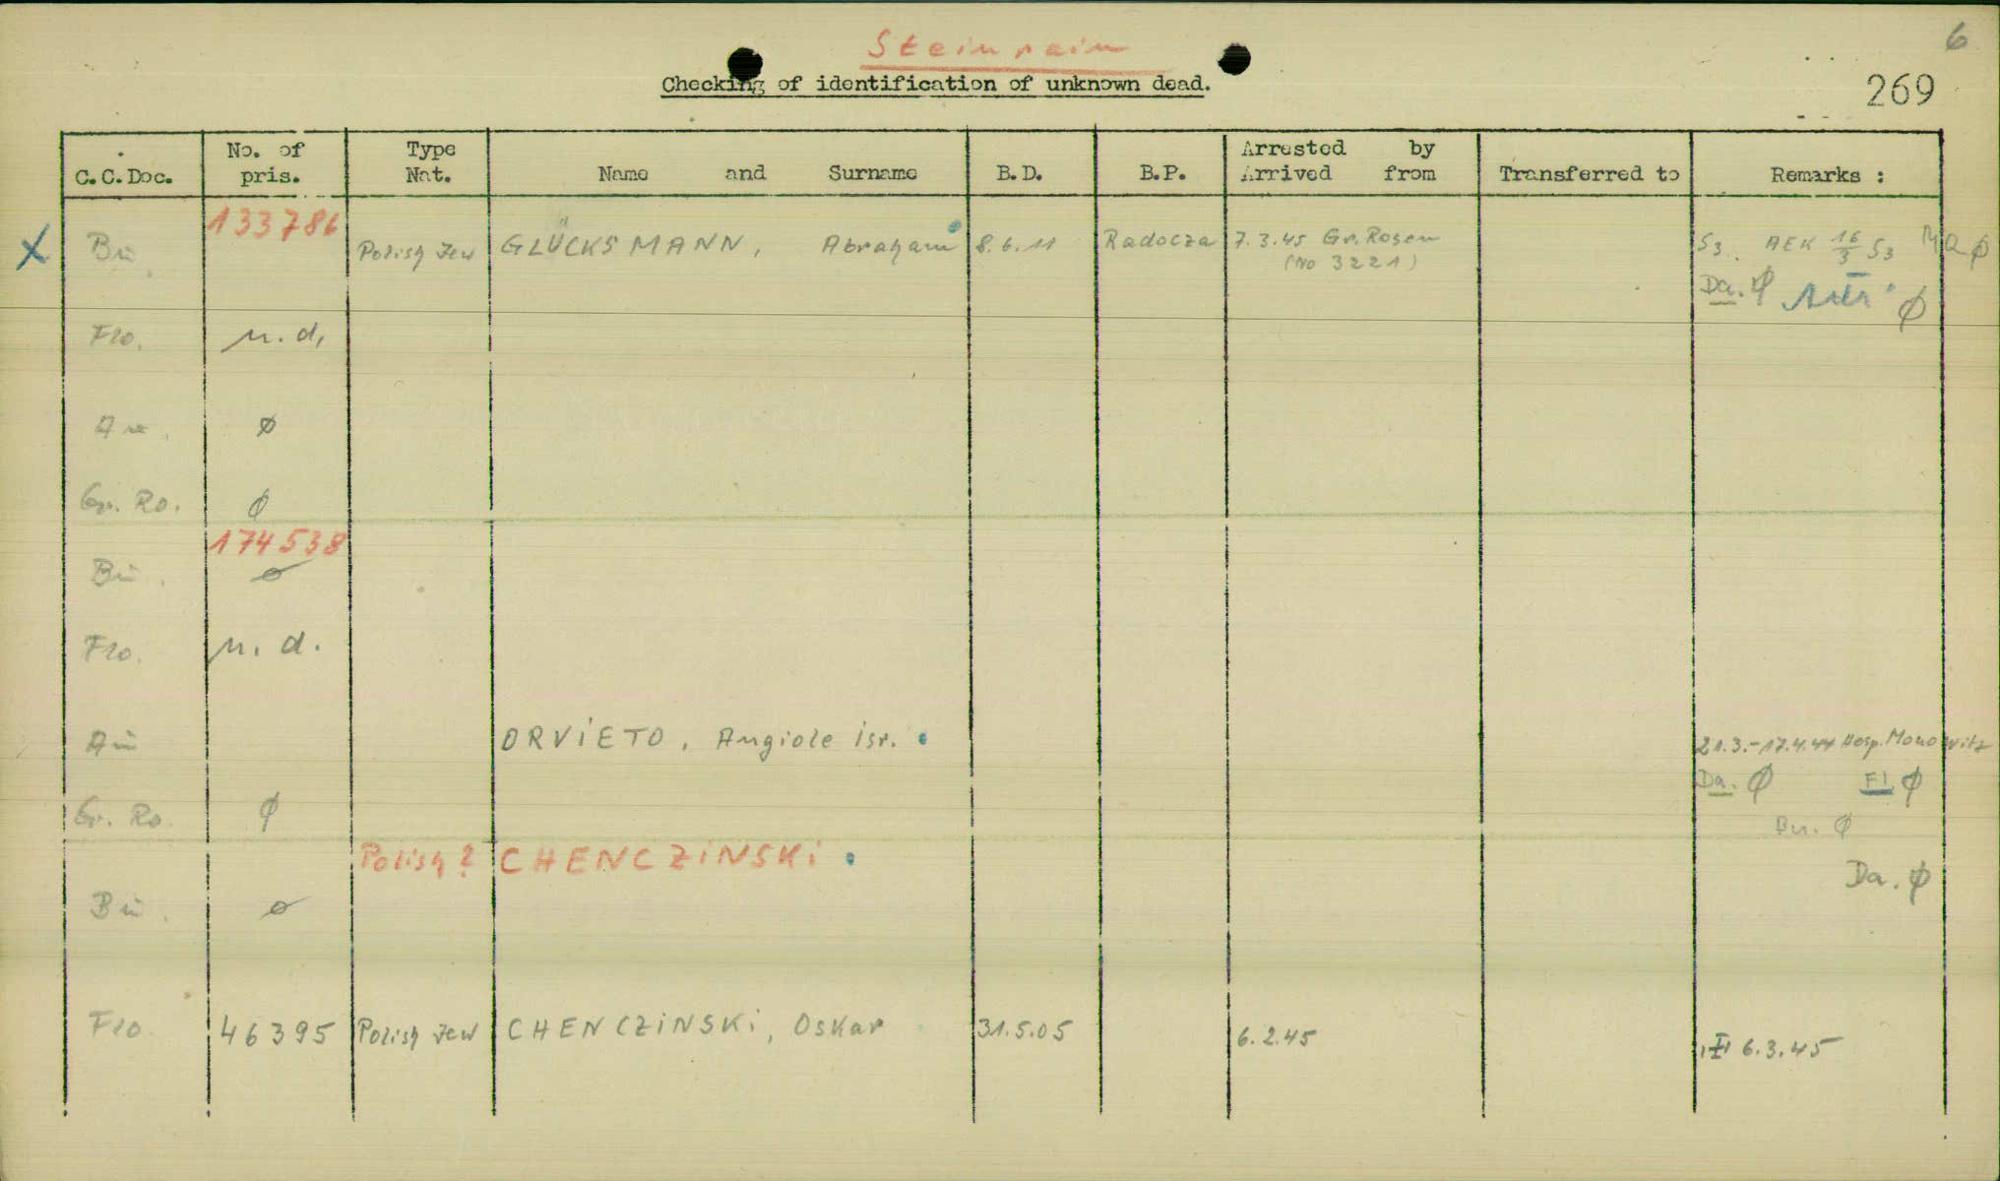 Steinrain
6
Checking of identification of unknown dead.
269
C.C.Doc. No. of pris. Type Nat. Name and Surname B.D. B.P. Arrested by Arrived from Transferred to Remarks :
133786
X Bu Polish Jew GLÜCKSMANN, Abraham 8.6.11 Radocza 7.3.45 Gr. Rosen S3. AEK 16/3 S3 Ma ∅
(No 3221)
Da. ∅ ∅
Flo. n.d.
Au. ∅
Gr. Ro. ∅
174538
Bu. ∅
Flo. n.d.
Au ORVIETO, Angiole isr. 21.3.-17.4.44 Hosp. Monowitz
Da. ∅ Fl ∅
Gr. Ro. ∅ Bu. ∅
Polish? CHENCZINSKI
Da. ∅
Bu. ∅
Flo. 46395 Polish Jew CHENCZINSKI, Oskar 31.5.05 6.2.45 6.3.45